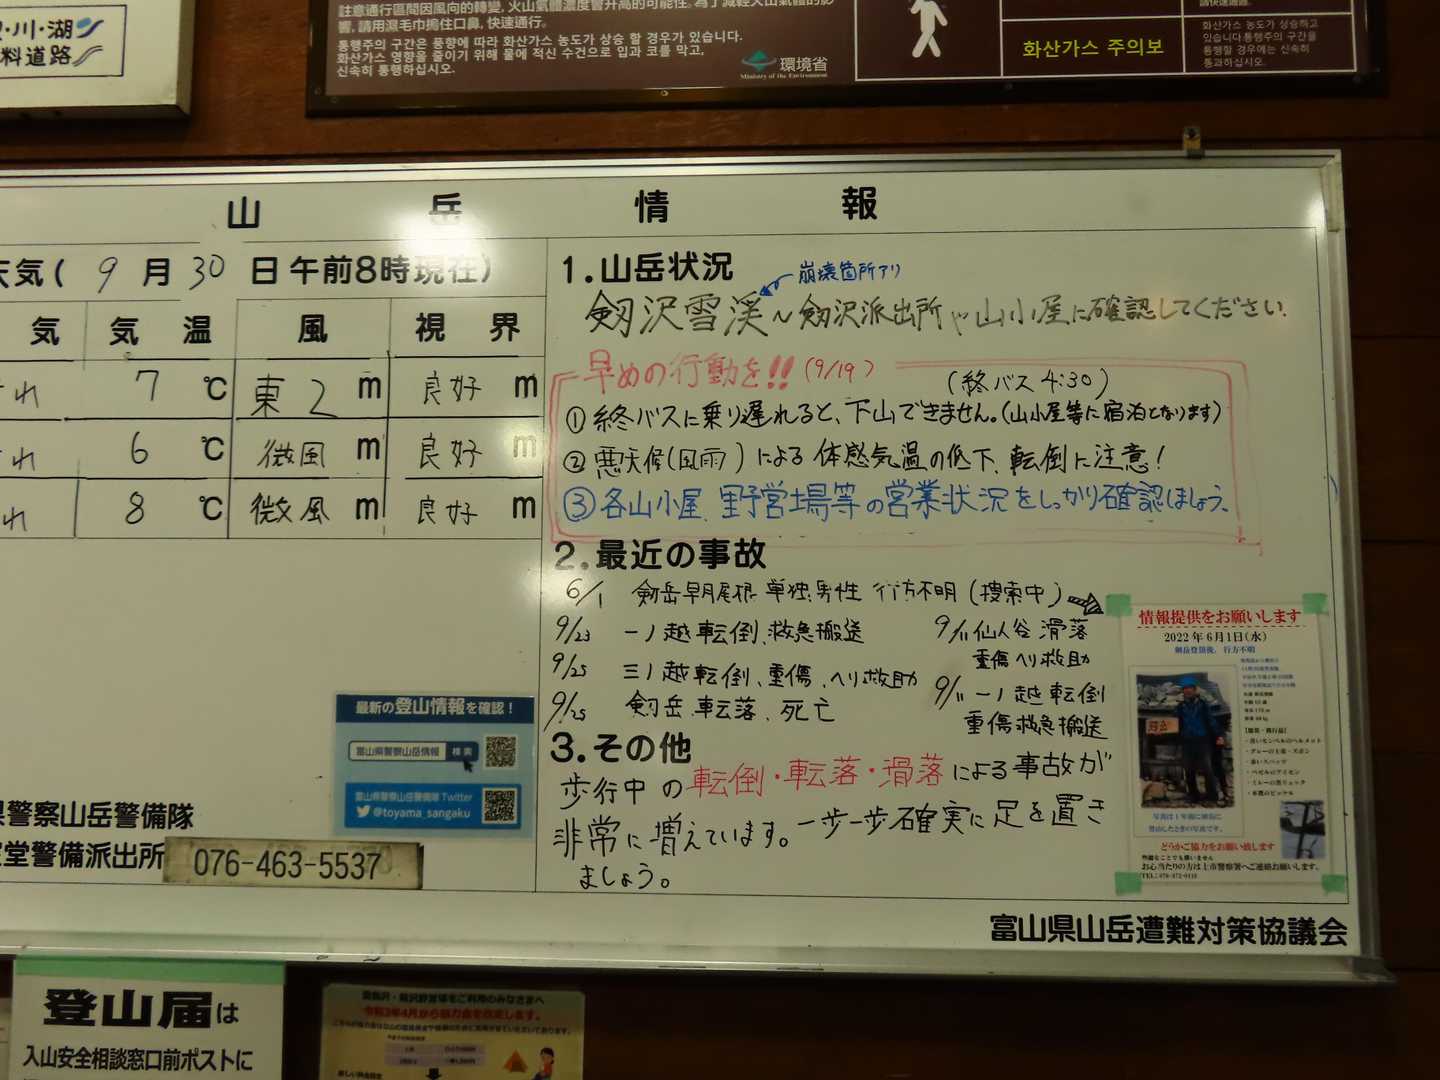 川・湖
料道路
註意通行區間因風向的轉變,火山氣體濃度會升高的可能性。為了減輕火山氣體的影
響,請用濕毛巾摀住口鼻,快速通行。
통행주의 구간은 풍향에 따라 화산가스 농도가 상승 할 경우가 있습니다.
화산가스 영향을 줄이기 위해 물에 적신 수건으로 입과 코를 막고,
신속히 통행하십시오.
環境省
Ministry of the Environment
화산가스 주의보
화산가스 농도가 상승하고
있습니다.통행주의 구간을
통행할 경우에는 신속히
통과하십시오.
山岳情報
天気( 9月30日午前8時現在)
気 気温 風 視界
れ 7℃ 東2m 良好m
れ 6℃ 微風m 良好m
れ 8℃ 微風m 良好m
最新の登山情報を確認!
富山県警察山岳情報 検索
富山県警察山岳警備隊 Twitter
@toyama_sangaku
県警察山岳警備隊
堂警備派出所 076-463-5537
1.山岳状況
崩壊箇所アリ
剱沢雪渓~剱沢派出所や山小屋に確認してください.
早めの行動を!!(9/19)
(終バス 4:30)
①終バスに乗り遅れると、下山できません。(山小屋等に宿泊となります)
②悪天候(風雨)による体感気温の低下、転倒に注意!
③各山小屋、野営場等の営業状況をしっかり確認しましょう.
2.最近の事故
6/1 剱岳早月尾根 単独男性 行方不明(捜索中)
9/23 一ノ越転倒、救急搬送
9/25 三ノ越転倒、重傷、ヘリ救助
9/25 剱岳、転落、死亡
9/11 仙人谷 滑落
重傷ヘリ救助
9/11 一ノ越転倒
重傷救急搬送
3.その他
歩行中の転倒・転落・滑落による事故が
非常に増えています。一歩一歩確実に足を置き
ましょう。
情報提供をお願いします
2022年6月1日(水)
剱岳登頂後、行方不明
【服装・携行品】
写真は1年前に剱岳に
登山したときの写真です。
どうかご協力をお願い致します
些細なことでも構いません
お心当たりの方は上市警察署へご連絡お願いします。
TEL:076-472-0110
富山県山岳遭難対策協議会
登山届は
入山安全相談窓口前ポストに
令和3年4月から協力金を改定します。